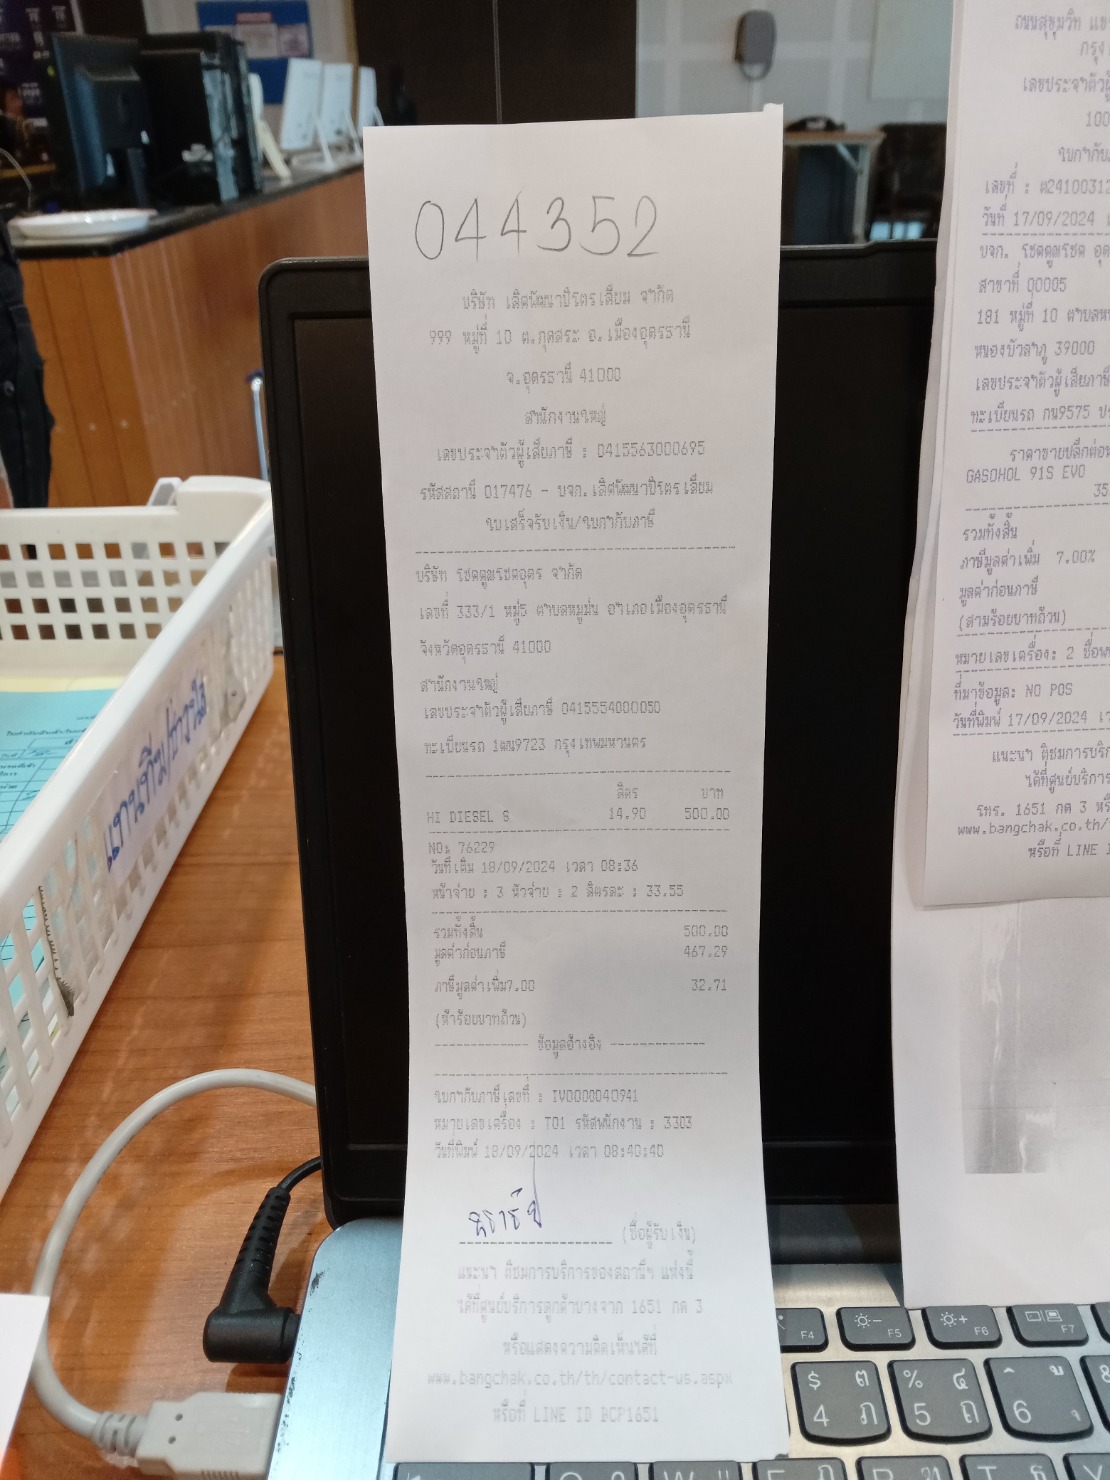 044352
บริษัท เลิศพัฒนาปิโตรเลียม จำกัด
999 หมู่ที่ 10 ต.กุดสระ อ.เมืองอุดรธานี
จ.อุดรธานี 41000
สำนักงานใหญ่
เลขประจำตัวผู้เสียภาษี : 0415563000695
รหัสสถานี 017476 - บจก.เลิศพัฒนาปิโตรเลียม
ใบเสร็จรับเงิน/ใบกำกับภาษี
บริษัท โชคดูมรีชตอุดร จำกัด
เลขที่ 333/1 หมู่5 ตำบลหมูม่น อำเภอเมืองอุดรธานี
จังหวัดอุดรธานี 41000
สำนักงานใหญ่
เลขประจำตัวผู้เสียภาษี 0415554000050
ทะเบียนรถ 1ฒน9723 กรุงเทพมหานคร
ลิตร บาท
HI DIESEL S 14.90 500.00
NO: 76229
วันที่เติม 18/09/2024 เวลา 08:36
หน้าจ่าย : 3 หัวจ่าย : 2 ลิตรละ : 33.55
รวมทั้งสิ้น 500.00
มูลค่าก่อนภาษี 467.29
ภาษีมูลค่าเพิ่ม7.00 32.71
(ห้าร้อยบาทถ้วน)
ข้อมูลอ้างอิง
ใบกำกับภาษีเลขที่ : IV0000040941
หมายเลขเครื่อง : T01 รหัสพนักงาน : 3303
วันที่พิมพ์ 18/09/2024 เวลา 08:40:40
(ชื่อผู้รับเงิน)
แนะนำ ติชมการบริการของสถานีฯ แห่งนี้
ได้ที่ศูนย์บริการลูกค้าบางจาก 1651 กด 3
หรือแสดงความคิดเห็นได้ที่
www.bangchak.co.th/th/contact-us.aspx
หรือที่ LINE ID BCP1651
ถนนสุขุมวิท แข
กรุง
เลขประจำตัวผู้
100
ใบกำกับ
เลขที่ : ต24100312
วันที่ 17/09/2024
บจก.
สาขาที่ 00005
181 หมู่ที่ 10 ตำบลห
หนองบัวลำภู 39000
เลขประจำตัวผู้เสียภาษี
ทะเบียนรถ กน9575
ราคาขายปลีกต่อ
GASOHOL 91S EVO
35
รวมทั้งสิ้น
ภาษีมูลค่าเพิ่ม 7.00%
มูลค่าก่อนภาษี
(สามร้อยบาทถ้วน)
หมายเลขเครื่อง: 2
ที่มาข้อมูล: NO POS
วันที่พิมพ์ 17/09/2024
แนะนำ ติชมการบริก
ได้ที่ศูนย์บริการ
โทร. 1651 กด 3
www.bangchak.co.th/
หรือที่ LINE I
แทนทิม/จารุใส
F4 F5 F6 F7
$ ฅ 4 ภ
% ๔ 5 ถ
6